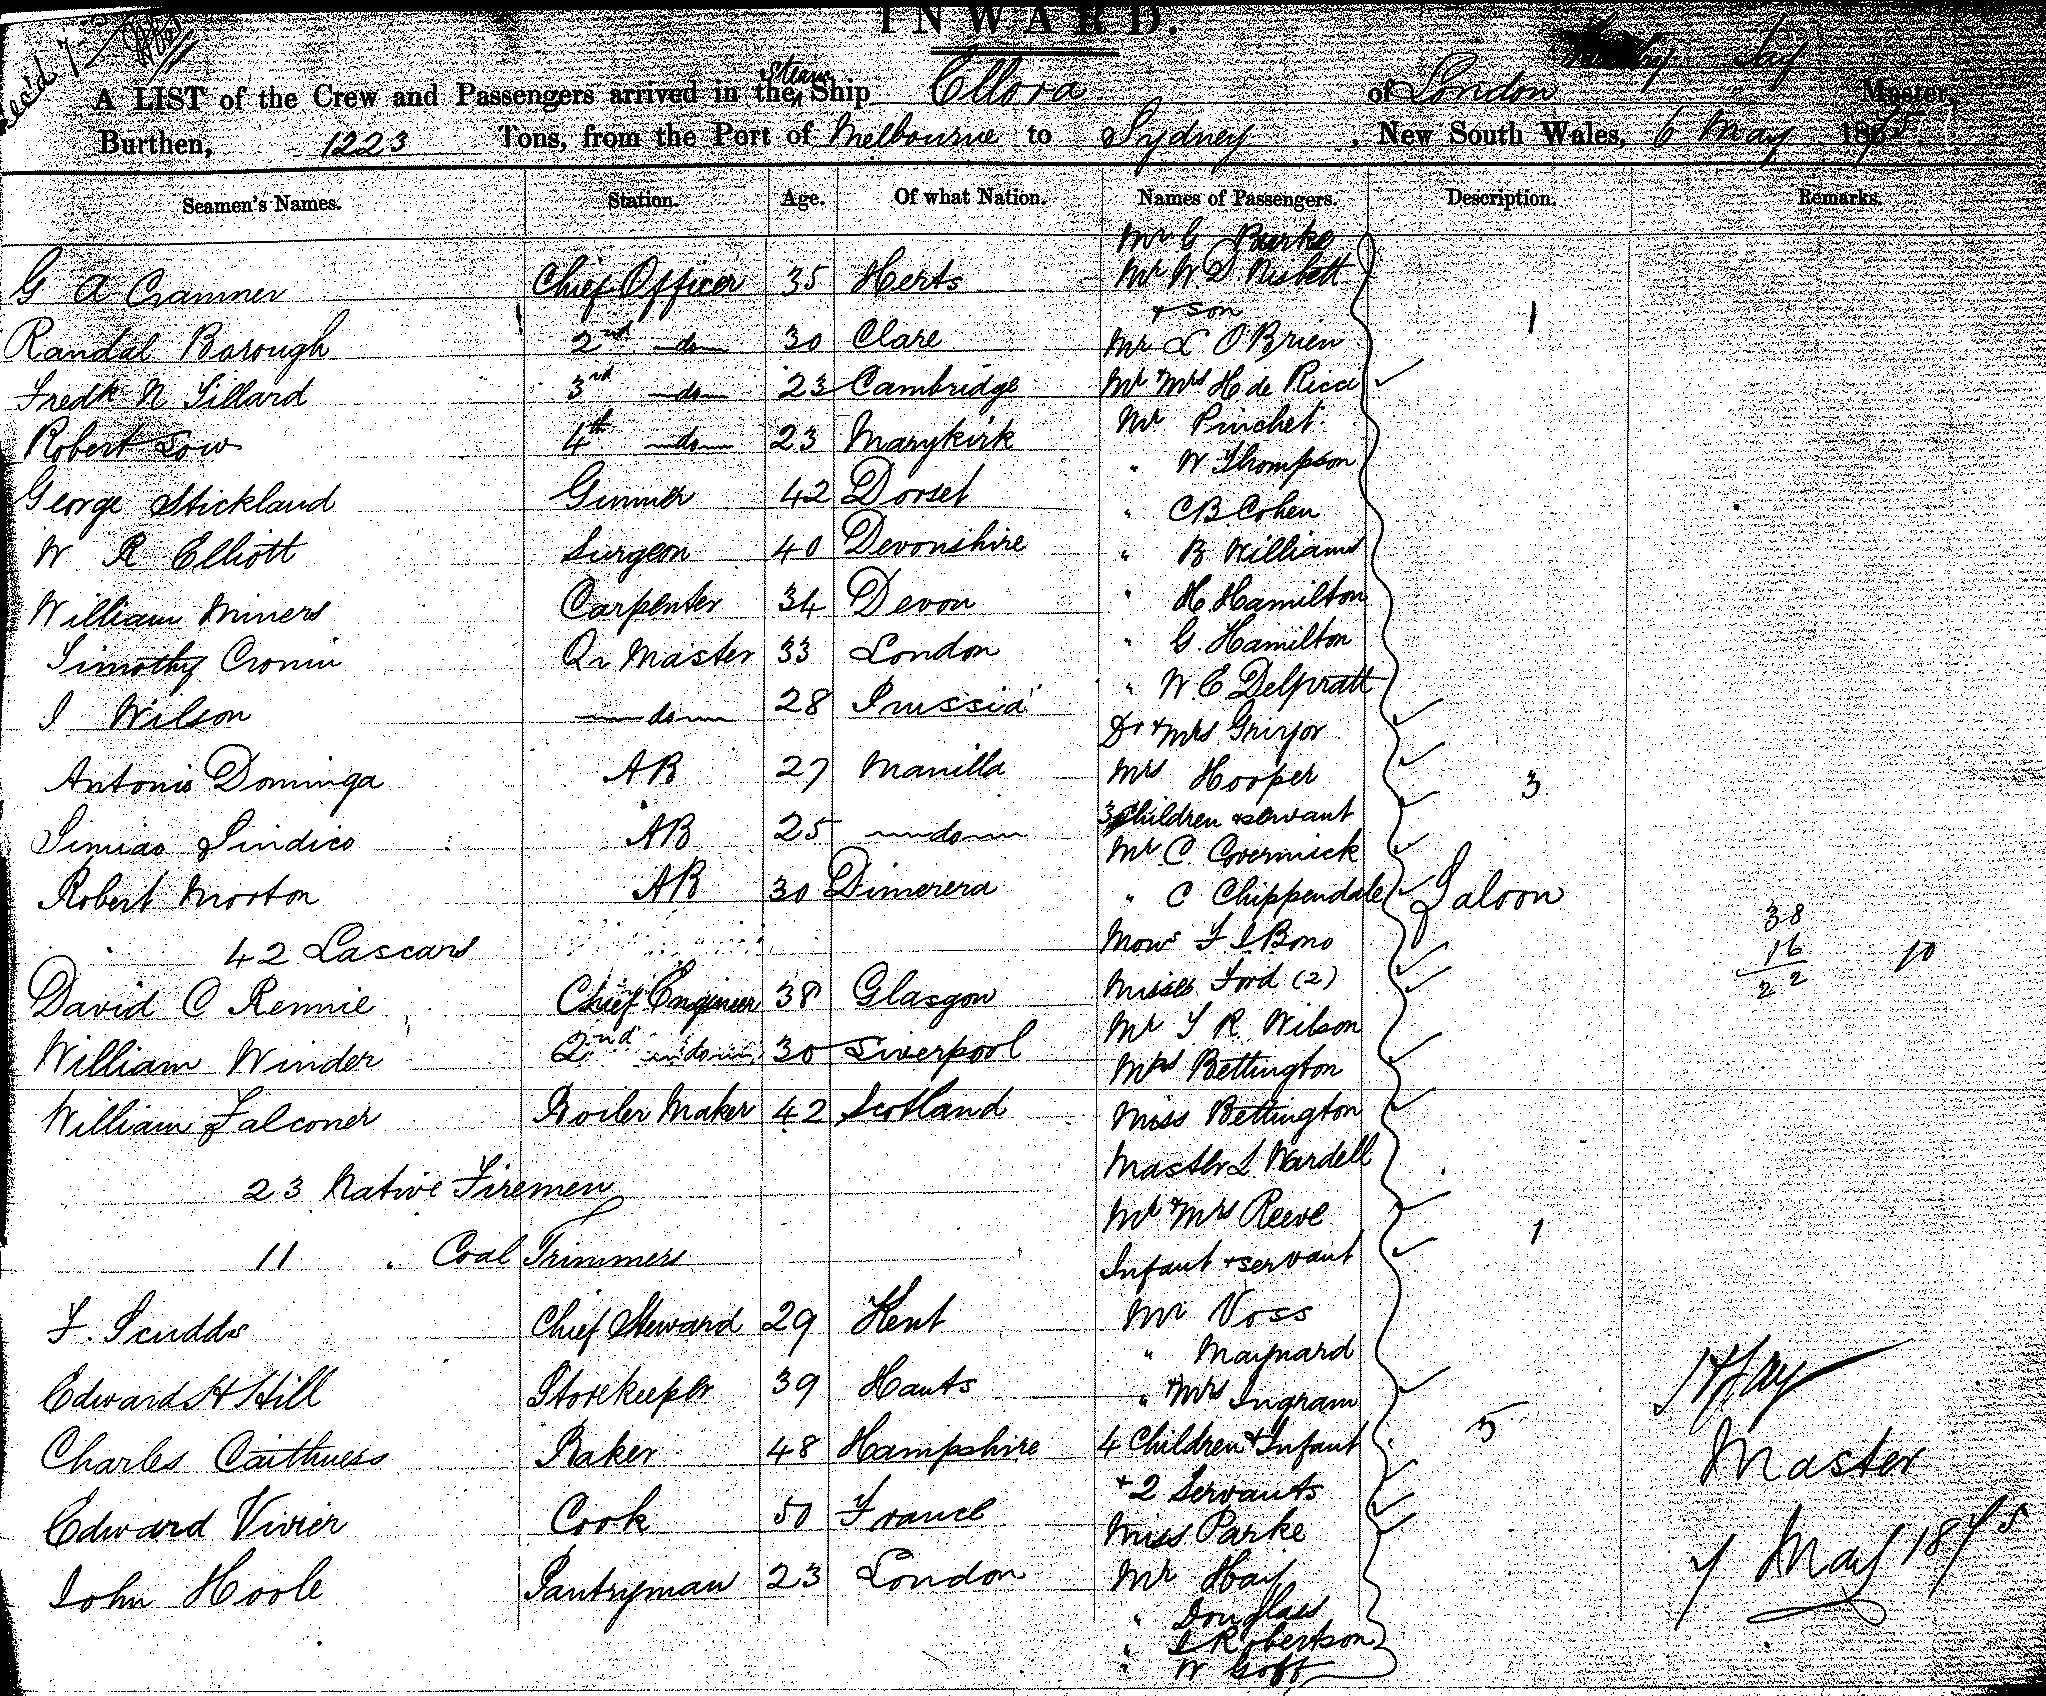 INWARD.
A LIST of the Crew and Passengers arrived in the Steam Ship Ellora of London Master,
Burthen, 1223 Tons, from the Port of Melbourne to Sydney, New South Wales, 6 May 1875
Seamen's Names. Station. Age. Of what Nation. Names of Passengers. Description. Remarks.
Mr C Burke
G A Cramner Chief Officer 35 Herts Mr W D Nisbett
+ son 1
Randal Borough 2nd do 30 Clare Mr L O'Brien
Fredk N Tillard 3rd do 23 Cambridge Mr + Mrs H de Ricci
Robert Low 4th do 23 Marykirk Mr Pinchet
" W Thompson
George Stickland Gunner 42 Dorset " C B Cohen
W R Elliott Surgeon 40 Devonshire " B Williams
William Miners Carpenter 34 Devon " H Hamilton
Timothy Cronin Qr Master 33 London " G. Hamilton
I Wilson do 28 Prussia " W E Delpratt
Dr + Mrs
Antonio Dominga AB 27 Manilla Mrs Hooper 3
3 Children + servant
Simiao Sindico AB 25 do Mr C
Robert Morton AB 30 Dimerera " C Chippendale Saloon
38
42 Lascars F I Bono 16 10
22
David C Rennie Chief Engineer 38 Glasgow Misses Ford (2)
Mr T R Wilson
William Winder 2nd do 30 Liverpool Mrs Bettington
William Falconer Boiler Maker 42 Scotland Miss Bettington
Master L Wardell
23 Native Firemen Mr + Mrs Reeve
11 " Coal Trimmers Infant + servant 1
F. Scudds Chief Steward 29 Kent Mr Voss
" Maynard
Edward H Hill Storekeeper 39 Hants " + Mrs Ingram
Charles Caithness Baker 48 Hampshire 4 Children + Infant 5
Master
+ 2 Servants
Edward Vivier Cook 50 France Miss Parke
7 May 1875
John Hoole Pantryman 23 London Mr Hay
" Douglas
" I Robertson
" W Goff